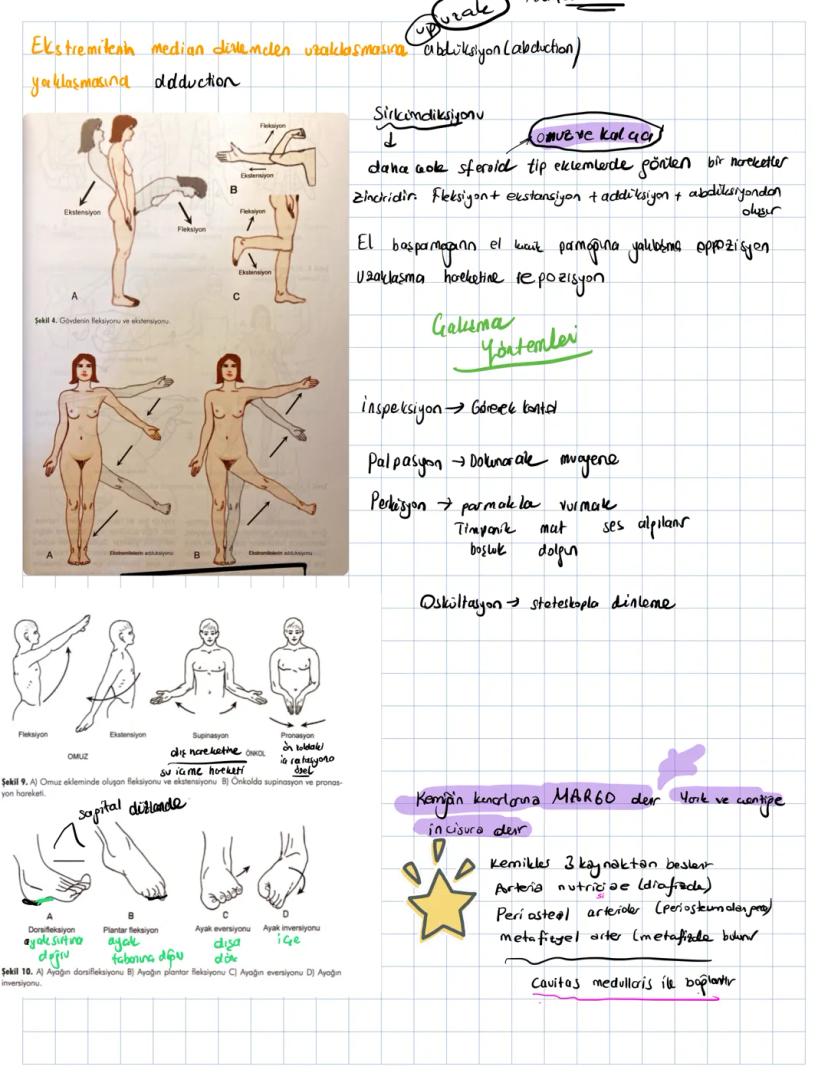 uzak
Ekstremitenin median düzlemden uzaklaşmasına abdüksiyon (abduction)
yaklaşmasına adduction
Sirkümdiksiyonu
omuz ve kalça
daha çok sferoid tip eklemlerde görülen bir hareketler
zinciridir. Fleksiyon + ekstansiyon + addüksiyon + abdüksiyondan
oluşur
El başparmağının el küçük parmağına yaklaşma oppozisyon
uzaklaşma hareketine repozisyon
Fleksiyon
Ekstensiyon
B
Ekstensiyon
Fleksiyon
Fleksiyon
Ekstensiyon
A
C
Şekil 4. Gövdenin fleksiyonu ve ekstensiyonu.
Çalışma
Yöntemleri
inspeksiyon → Görerek kontrol
Palpasyon → Dokunarak muayene
Perküsyon → parmakla vurmak
Timpanik mat ses alpılanır
boşluk dolgun
A
Ekstremitelerin addüksiyonu
B
Ekstremitelerin abdüksiyonu
Oskültasyon → steteskopla dinleme
Fleksiyon
Ekstensiyon
Supinasyon
Pronasyon
OMUZ
ÖNKOL
dış hareketine
su içme hareketi
ön koldaki
iç rotasyona
özel
Şekil 9. A) Omuz ekleminde oluşan fleksiyonu ve ekstensiyonu B) Önkolda supinasyon ve pronas-
yon hareketi.
sagital düzlemde
Kemiğin kenarlarına MARGO denir Yarık ve çentiğe
incisura denir
Kemikler 3 kaynaktan beslenir
Arteria nutriciae (diafizde)
si
Periosteal arterioler
metafizyel arter (metafizde bulunur
cavitas medullaris ile bağlantır
A
B
C
D
Dorsifleksiyon
Plantar fleksiyon
Ayak eversiyonu
Ayak inversiyonu
ayak sırtına
doğru
ayak
tabanına doğru
dışa
dön
içe
Şekil 10. A) Ayağın dorsifleksiyonu B) Ayağın plantar fleksiyonu C) Ayağın eversiyonu D) Ayağın
inversiyonu.